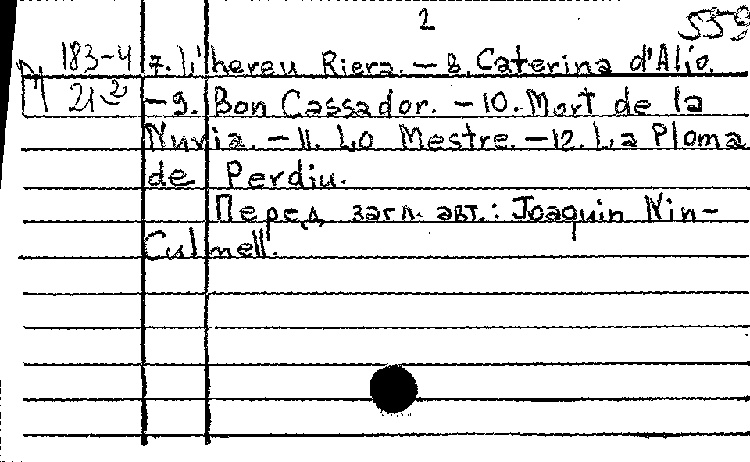 2 559
М 183-4 7. L'hereu Riera. – 8. Caterina d'Alio.
21 – 9. Bon Cassador. – 10. Mort de la
Nuvia. – 11. Lo Mestre. – 12. La Ploma
de Perdiu.
Перед загл. авт.: Joaquin Nin-
Culmell.